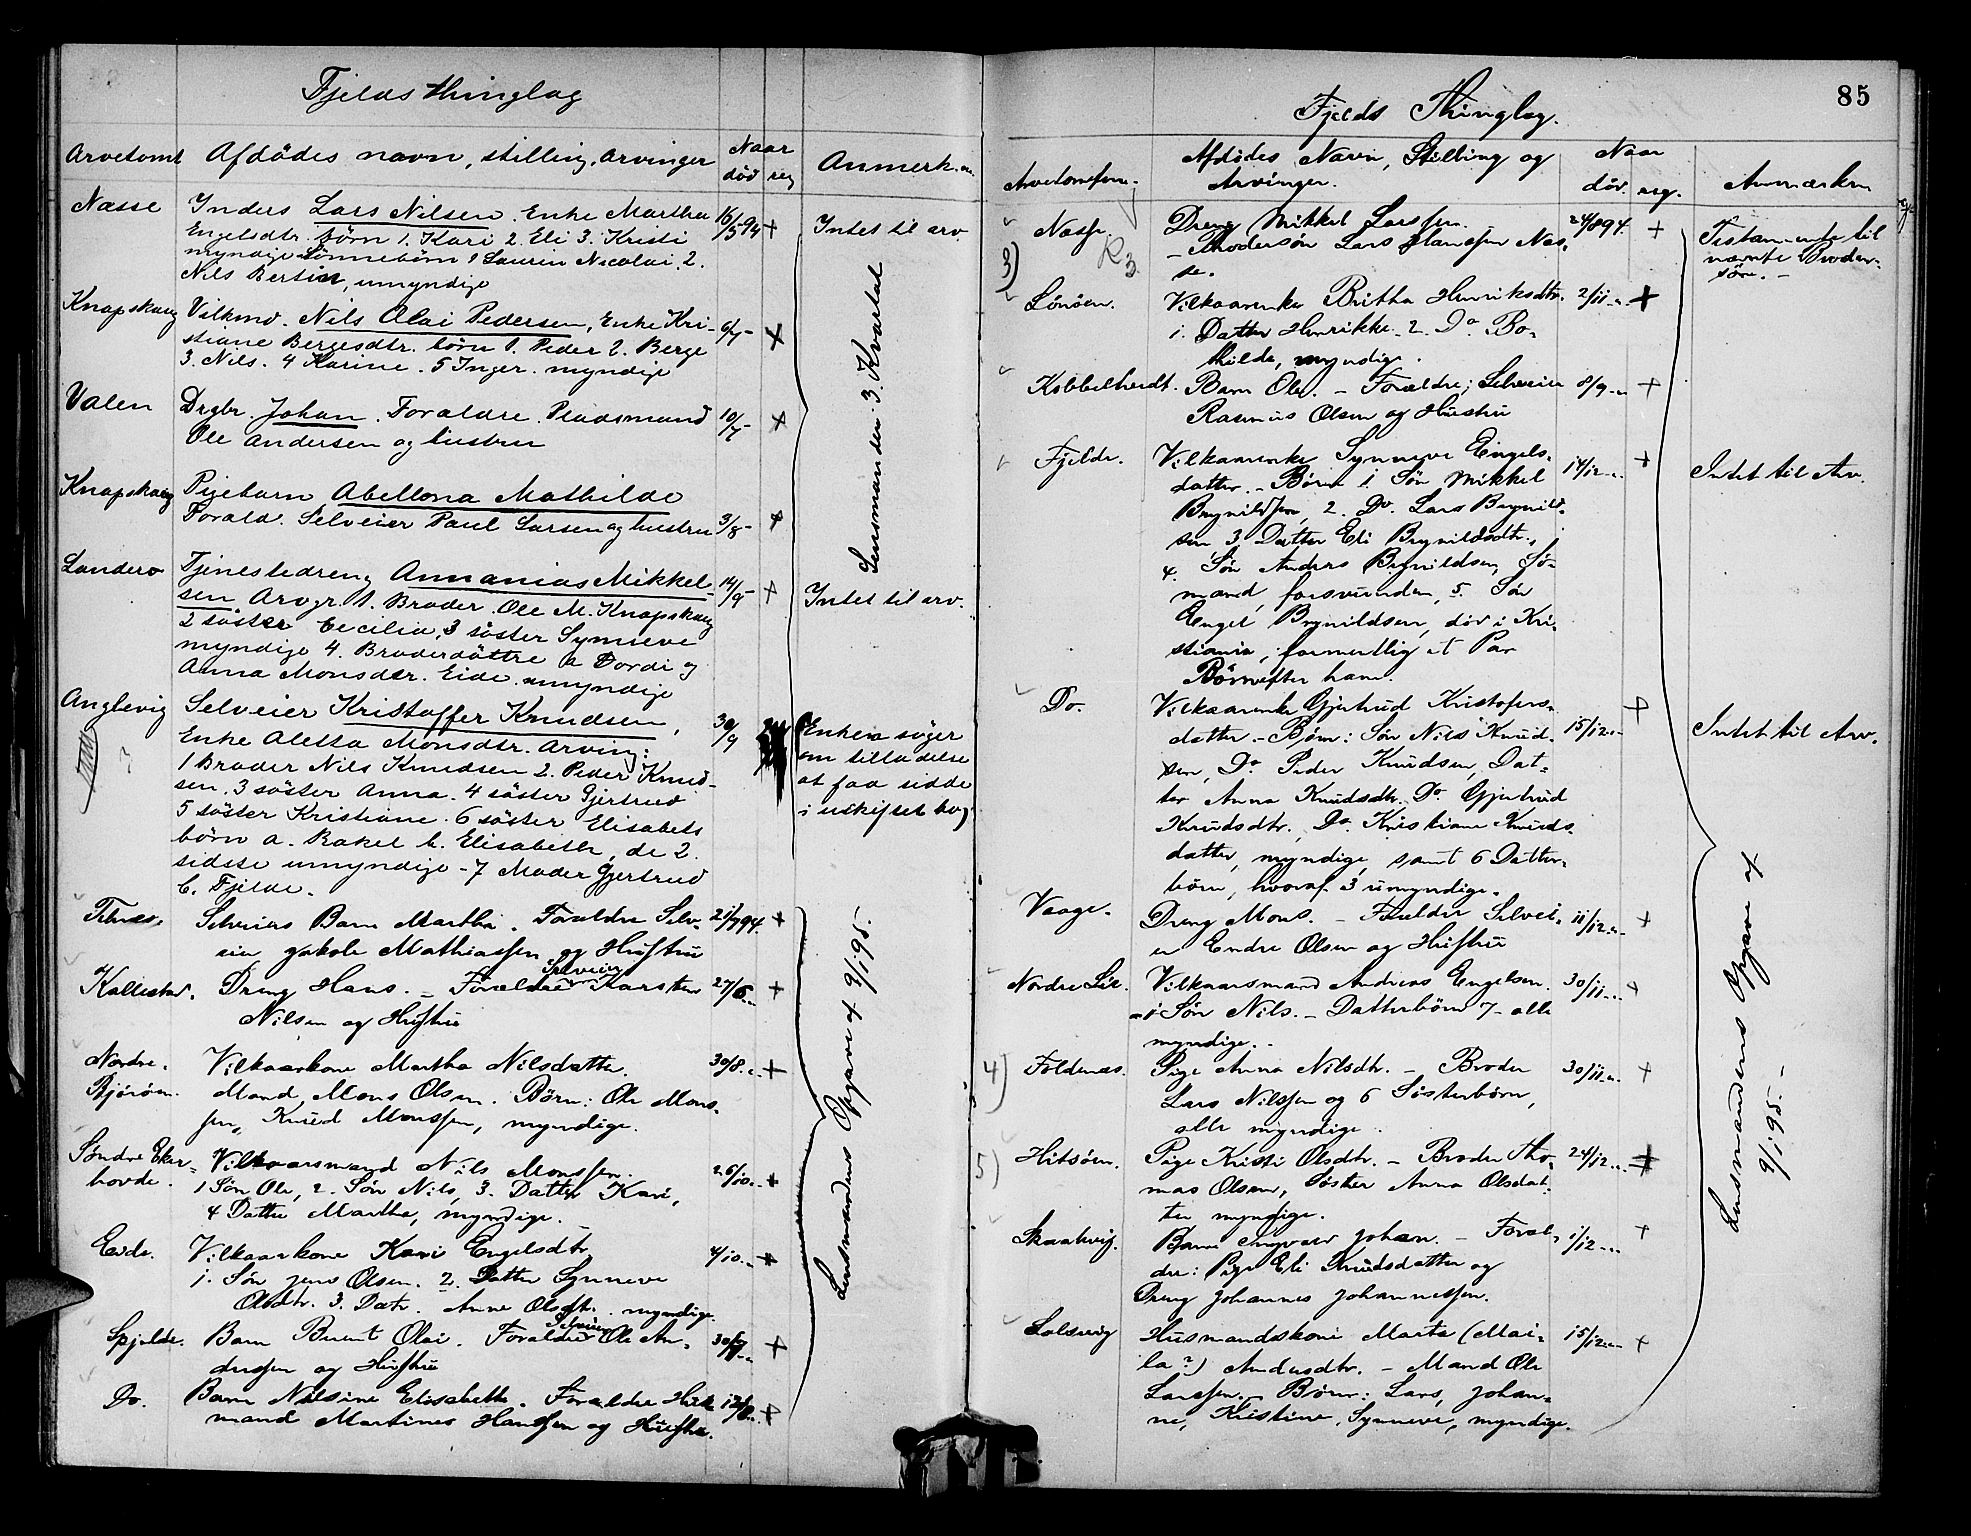 Fjelds thinglag
Arvetomt Afdödes navn, stilling, arvinger Naar død reg Anmerkn.
Næsse Inders Lars Nilsen. Enke Martha 16/5 94 + Intet til arv.
Engelsdtr. børn 1. Kari 2. Eli 3. Kristi
myndige Sönnebörn 1 Laurin Nicolai 2.
Nils Bertin, umyndige
Knapskaug Vilkmd. Nils Olai Pedersen, Enke Kri- 6/7 +
stiane Bergesdtr. børn 1. Peder 2. Berge
3. Nils. 4 Karine. 5 Inger. myndige
Valen Drgbr. Johan. Foraldre. Pladsmand 10/7- +
Ole Andersen og hustru
Knapskaug Pigebarn Abellona Mathilde
Forald. Selveier Paul Larsen og hustru 3/8- +
Landero Tjenestedreng Annanias Mikkel- 14/9- + Intet til arv.
sen Arvgr. 1. Broder. Ole M. Knapskaug
2 söster Cecilia, 3 söster Synneve
myndige 4. Broderdöttre a Dordi og
Anna Monsdtr. Eide umyndige
Lensmanden 3. Kvartal
Anglevig Selveier Kristoffer Knudsen, 30/9 Enken söger
Enke Aletta Monsdtr. Arving: om tilladelse
1 Broder Nils Knudsen 2. Peder Knud- at faa sidde
sen. 3 söster Anna. 4 söster Gjertrud i uskiftet bo
5 söster Kristiane. 6 söster Elisabets
börn a. Rakel b. Elisabeth, de 2
sidste umyndige - 7 Moder Gjertrud
C. Fjelde.
Selveiers Barn Martha. Forældre Selv- 21/7 94. +
eier Jakob Mathiassen og Hustru
Selveier
Kallestad. Dreng Hans. - Forældre Karsten 27/6.. +
Nilsen og Hustru
Nordre Vilkaarkone Martha Nilsdatter. 30/8.. +
Bjørøen. Mand, Mons Olsen. Børn: Ole Mons-
sen, Knud Monssen, myndige.
Søndre Eker- Vilkaarsmand Nils Monssen. 26/10.. +
hovde. 1 Søn Ole, 2. Søn Nils, 3. Datter Kari,
4 Datter Martha, myndige.
Eide. Vilkaarkone Kari Engelsdtr. 4/10.. +
1. Søn Jens Olsen. 2. Datter Synneve
Olsdtr. 3. Datr. Anne Olsdtr. myndige.
Selveier
Spjelde. Barn Bernt Olai. Forældre Ole An- 30/7.. +
dersen og Hustru
Do. Barn Nilsine Elisabeth. Forældre Hus- 12/8.. +
mand Martines Hanssen og Hustru.
Lensmandens Opgave af 9/1 95.
85
Fjelds Thinglag.
Arvetomterne. Afdødes Navn, Stilling og Arvinger. Naar død. reg. Anmærkn
3) Næsse. R3 Dreng Mikkel Larssen. 24/8 94. + Testamente til
- Brodersøn Lars Hanssen Næs- nævnte Broder-
se. søn. -
Sønøen. Vilkaarenke Britha Henriksdtr. 2/11.. +
1. Datter Henrikke. 2. Do. Bo-
thilde, myndige.
Kobbeltveidt. Barn Ole. - Forældre; Selveier 8/9.. +
Rasmus Olsen og Hustru
Fjelde. Vilkaarenke Synneve Engels- 14/12.. + Intet til Arv.
datter. - Børn 1. Søn Mikkel
Brynildsen, 2. Do. Lars Brynild-
sen 3 Datter Eli Brynildsdtr.,
4. Søn Anders Brynildsen, Sø-
mand, forsvunden, 5. Søn
Engel Brynildsen, død i Kri-
stiania, formentlig et Par
Børn efter ham.
Do. Vilkaarenke Gjertrud Kristofers- 15/12.. + Intet til Arv.
datter. - Børn: Søn Nils Knud-
sen, Do. Peder Knudsen, Dat-
ter Anna Knudsdtr. Do. Gjertrud
Knudsdtr., Do. Kristiane Knuds-
datter, myndige, samt 6 Datter-
børn, hvoraf 3 umyndige.
Vaage. Dreng Mons. - Forældre Selvei- 11/12.. +
er Endre Olsen og Hustru
Nordre Lie. Vilkaarsmand Andreas Engelsen. 30/11... +
- 1 Søn Nils. - Datterbørn 7 - alle
myndige.
4) Foldenæs. Pige Anna Nilsdtr. - Broder 30/11.. +
Lars Nilssen og 6 Søsterbørn,
alle myndige.
5) Hitsøen. Pige Kristi Olsdtr. - Broder Tho- 24/12... +
mas Olsen, Søster Anna Olsdat-
ter myndige.
Skaalvig. Barn Ingvald Johan. - Foræl- 1/12... +
dre: Pige Eli Knudsdatter og
Dreng Johannes Johannessen.
Solsvig Husmandskone Marta (Mai- 15/12... +
la?) Andersdtr. - Mand Ole
Larssen. - Børn: Lars, Johan-
ne, Kristine, Synneve, myndige.
Lensmandens Opgave af
9/1 95. -